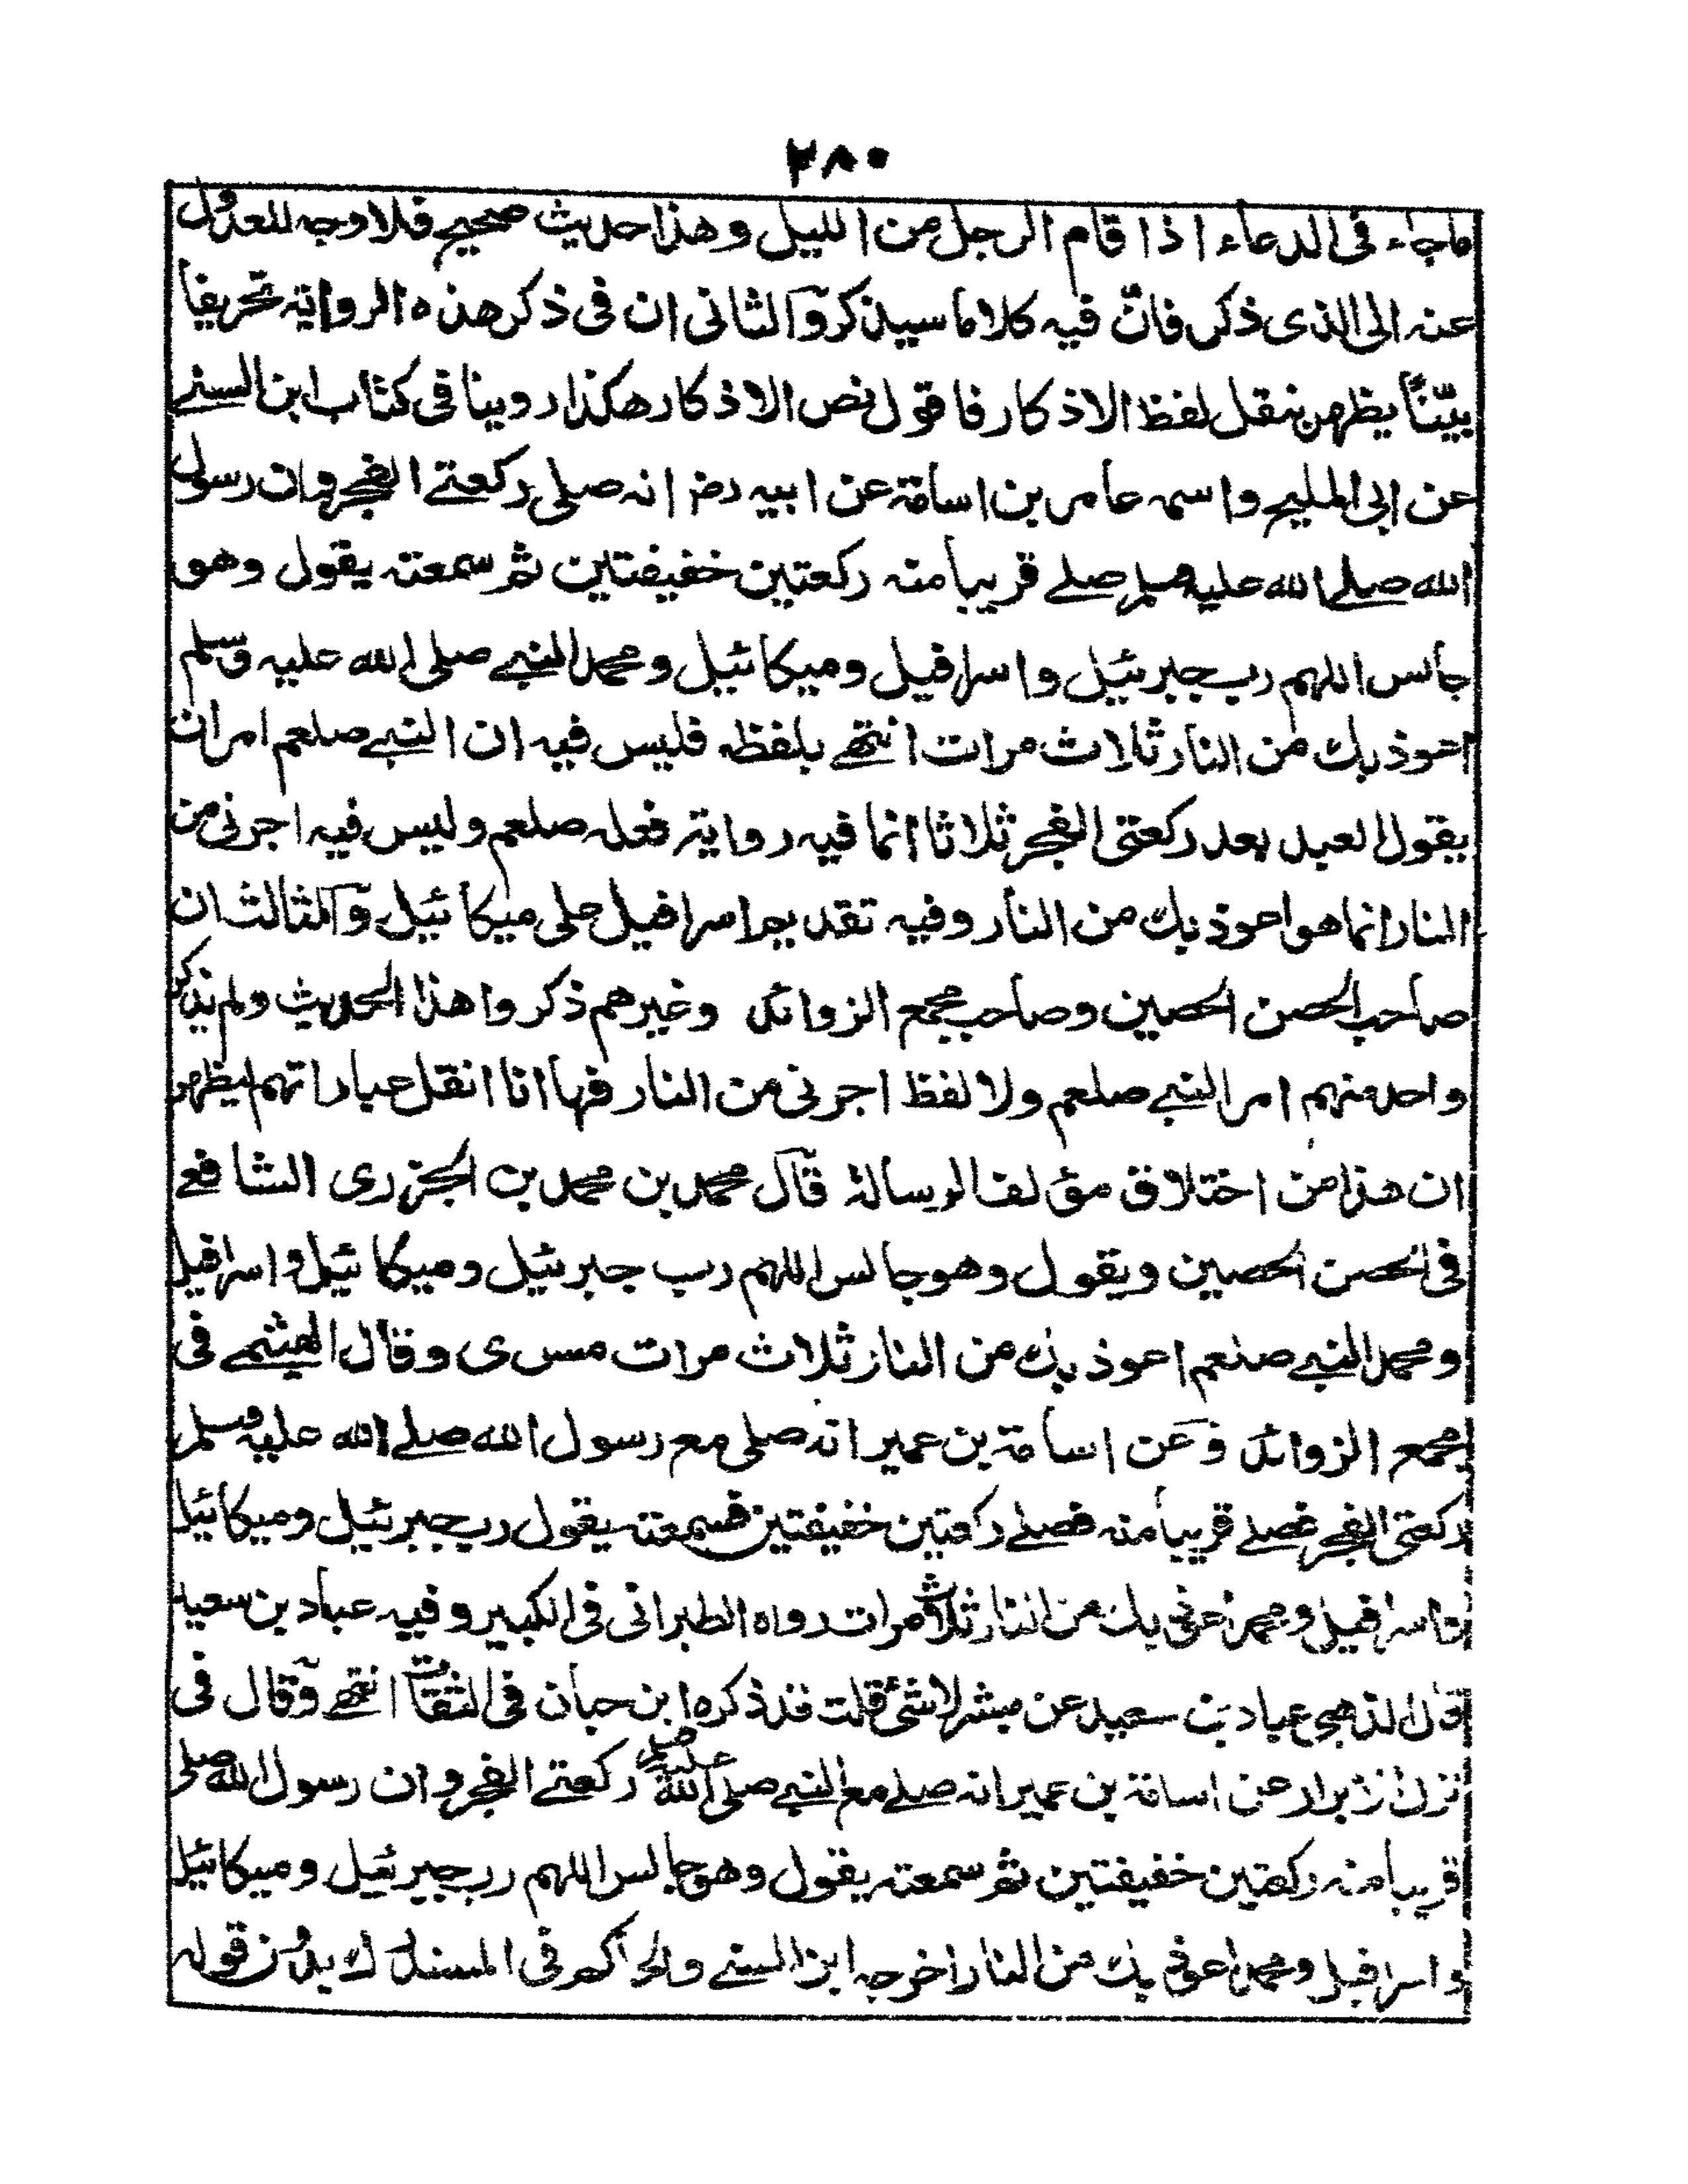 ٢٨٠
ماجاء فى الدعاء اذا قام الرجل من الليل وهذا حديث صحيح فلا وجه للعدول
عنه الى الذى ذكر فان فيه كلاما سيذكر والثانى ان فى ذكر هذه الرواية تحريفا
بيّنًا يظهر بنقل لفظ الاذكار فاقول نص الاذكار هكذا روينا فى كتاب ابن السنے
عن ابى المليح واسمه عامر بن اسامة عن ابيه رضـ انه صلى ركعتے الفجر وان رسول
الله صلے الله عليه وسلم صلے قريبا منه ركعتين خفيفتين ثم سمعته يقول وهو
جالس اللهم رب جبرئيل واسرافيل وميكائيل ومحمد النبے صلى الله عليه وسلم
اعوذ بك من النار ثلاث مرات انتهے بلفظه فليس فيه ان النبے صلعم امر ان
يقول العبد بعد ركعتى الفجر ثلاثا انما فيه رواية فعله صلعم وليس فيه اجرنى من
النار انما هو اعوذ بك من النار وفيه تقديم اسرافيل على ميكائيل والثالث ان
صاحب الحصن الحصين وصاحب مجمع الزوائد وغيرهم ذكروا هذا الحديث ولم يذكر
واحد منهم امر النبے صلعم ولا لفظ اجرنى من النار فها انا انقل عباراتهم ليظهر
ان هذا من اختلاق مؤلف الرسالة قال محمد بن محمد بن الجزرى الشافعے
فى الحصن الحصين ويقول وهو جالس اللهم رب جبرئيل وميكائيل واسرافيل
ومحمد النبے صلعم اعوذ بك من النار ثلاث مرات مس ى وقال الهيثمے فى
مجمع الزوائد وعن اسامة بن عمير انه صلى مع رسول الله صلے الله عليه وسلم
ركعتى الفجر فصلے قريبا منه فصلے ركعتين خفيفتين فسمعته يقول رب جبرئيل وميكائيل
واسرافيل ومحمد اعوذ بك من النار ثلاث مرات رواه الطبرانى فى الكبير وفيه عباد بن سعيد
قال الذهبى عباد بن سعيد عن مبشر لا شئ قلت قد ذكره ابن حبان فى الثقات انتهے وقال فى
عن اسامة بن عمير انه صلے مع النبے صلى الله عليه وسلم ركعتے الفجر وان رسول الله صلى
قريبا منه ركعتين خفيفتين ثم سمعته يقول وهو جالس اللهم رب جبرئيل وميكائيل
واسرافيل ومحمد اعوذ بك من النار اخرجه ابن السنے والحاكم فى المستدرك بدون قوله